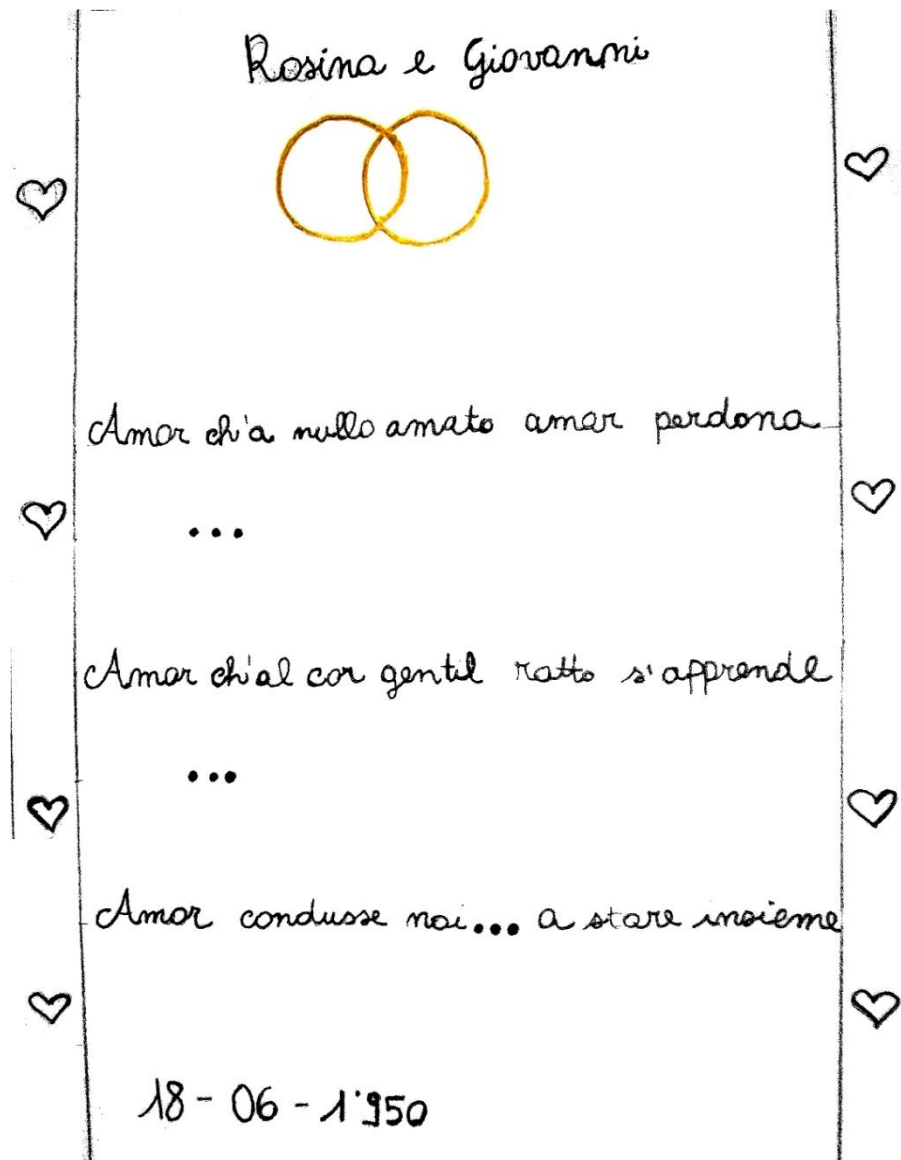 Rosina e Giovanni
Amor ch'a nullo amato amar perdona
...
Amor ch'al cor gentil ratto s'apprende
...
Amor condusse noi... a stare insieme
18-06-1'950